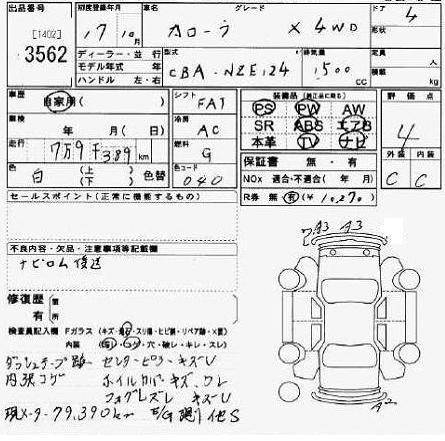 出品番号 初度登録年月 車名 グレード ドア
[1402] 17 年 10月 カローラ X 4WD 4
3562 ディーラー・並行 型式 排気量 定員 人
モデル年式 年 CBA-NZE124 1500 CC 積載 kg
ハンドル 左・右
車歴 自家用( ) シフト FAT 装備品(純正品に限る) 評価点
PS PW AW
車検 年 月( 日) 冷房 AC SR ABS エアB 4
走行 7万9千389km 燃料 G 本革 TV ナビ
保証書 無・有 外装 内装
色 白 (上) (下) 色替 色コード 040 NOx 適合・不適合( 年 月) C C
セールスポイント(正常に機能するもの) R券 無 有(¥10,270)
A3 A3
不具合内容・欠品・注意事項等記載欄
ナビロム後送
修復歴 有 箇所
無
検査員記入欄 Fガラス(キズ・飛石・スリ傷・ヒビ割・リペア跡・×要)
内装( コゲ・穴・破レ・キレ・スレ)
ダッシュテープ跡 センターピラーキズU
内張コゲ ホイルカバーキズ、ワレ
フォグレズレ キズU
現メーター79,390km
A2